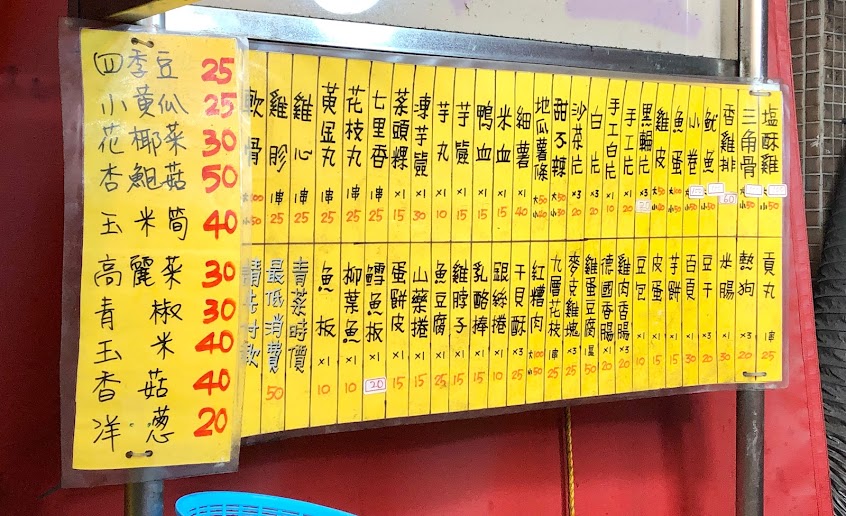 四季豆 25
小黃瓜 25
花椰菜 30
杏鮑菇 50
玉米筍 40
高麗菜 30
青椒 30
玉米 40
香菇 40
洋蔥 20
塩酥雞 小50
三角骨 小50
香雞排 60
魷魚
小卷
魚蛋
雞皮 大50 小20
黑輪片
手工片 ×1 20
手工白片 ×1 10
白片 ×3 20
沙茶片 ×3 20
甜不辣 大50 小30
地瓜薯條 大50 小40
細薯 ×1 40
米血 ×1 15
鴨血 ×1 15
芋簽 ×1 15
芋丸 ×1 10
凍芋簽 ×1 30
菜頭粿 ×1 15
七里香 1串 25
花枝丸 1串 25
黃金丸 1串 25
雞心 1串 25
雞胗 1串 25
軟骨 大100 小50
貢丸 1串 25
熱狗 ×3 20
米腸 ×1 30
豆干 ×3 20
百頁 ×3 30
芋餅 ×1 15
皮蛋 ×1 15
豆包 ×1 10
雞肉香腸 ×3 20
德國香腸 ×1 20
雞蛋豆腐 1盒 50
麥克雞塊 ×3 25
九層花枝 1串 25
紅糟肉 大100 小50
干貝酥 ×3 25
銀絲捲 ×1 15
乳酪棒 ×1 15
雞脖子 ×1 15
魚豆腐 ×2 25
山藥捲 ×1 15
蛋餅皮 ×1 15
鱈魚板 ×1 20
柳葉魚 ×1 10
魚板 ×1 10
青菜時價
最低消費 50
請先付款